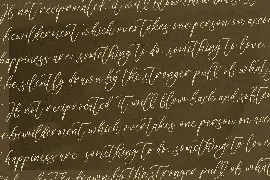 not reciprocated, it will
bewilderment which overtakes one person on
happiness are something to do, something to love
silently drawn by the stronger pull of what
If not reciprocated it will flow back and
bewilderment, which overtakes one person on
happiness are something to do, something to love
by the stronger pull of what